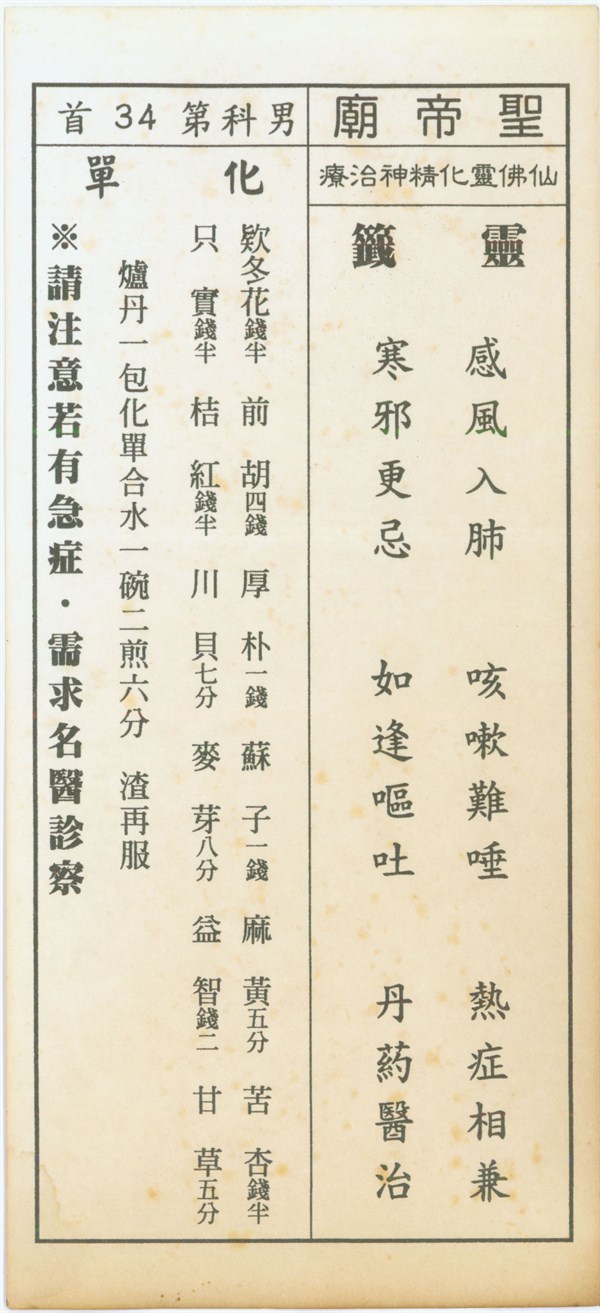 聖帝廟
仙佛靈化精神治療
靈籤
感風入肺 咳嗽難唾 熱症相兼
寒邪更忌 如逢嘔吐 丹葯醫治
男科第34首
化單
欵冬花錢半 前胡四錢 厚朴一錢 蘇子一錢 麻黃五分 苦杏錢半
只實錢半 桔紅錢半 川貝七分 麥芽八分 益智錢二 甘草五分
爐丹一包化單合水一碗二煎六分 渣再服
※請注意若有急症・需求名醫診察